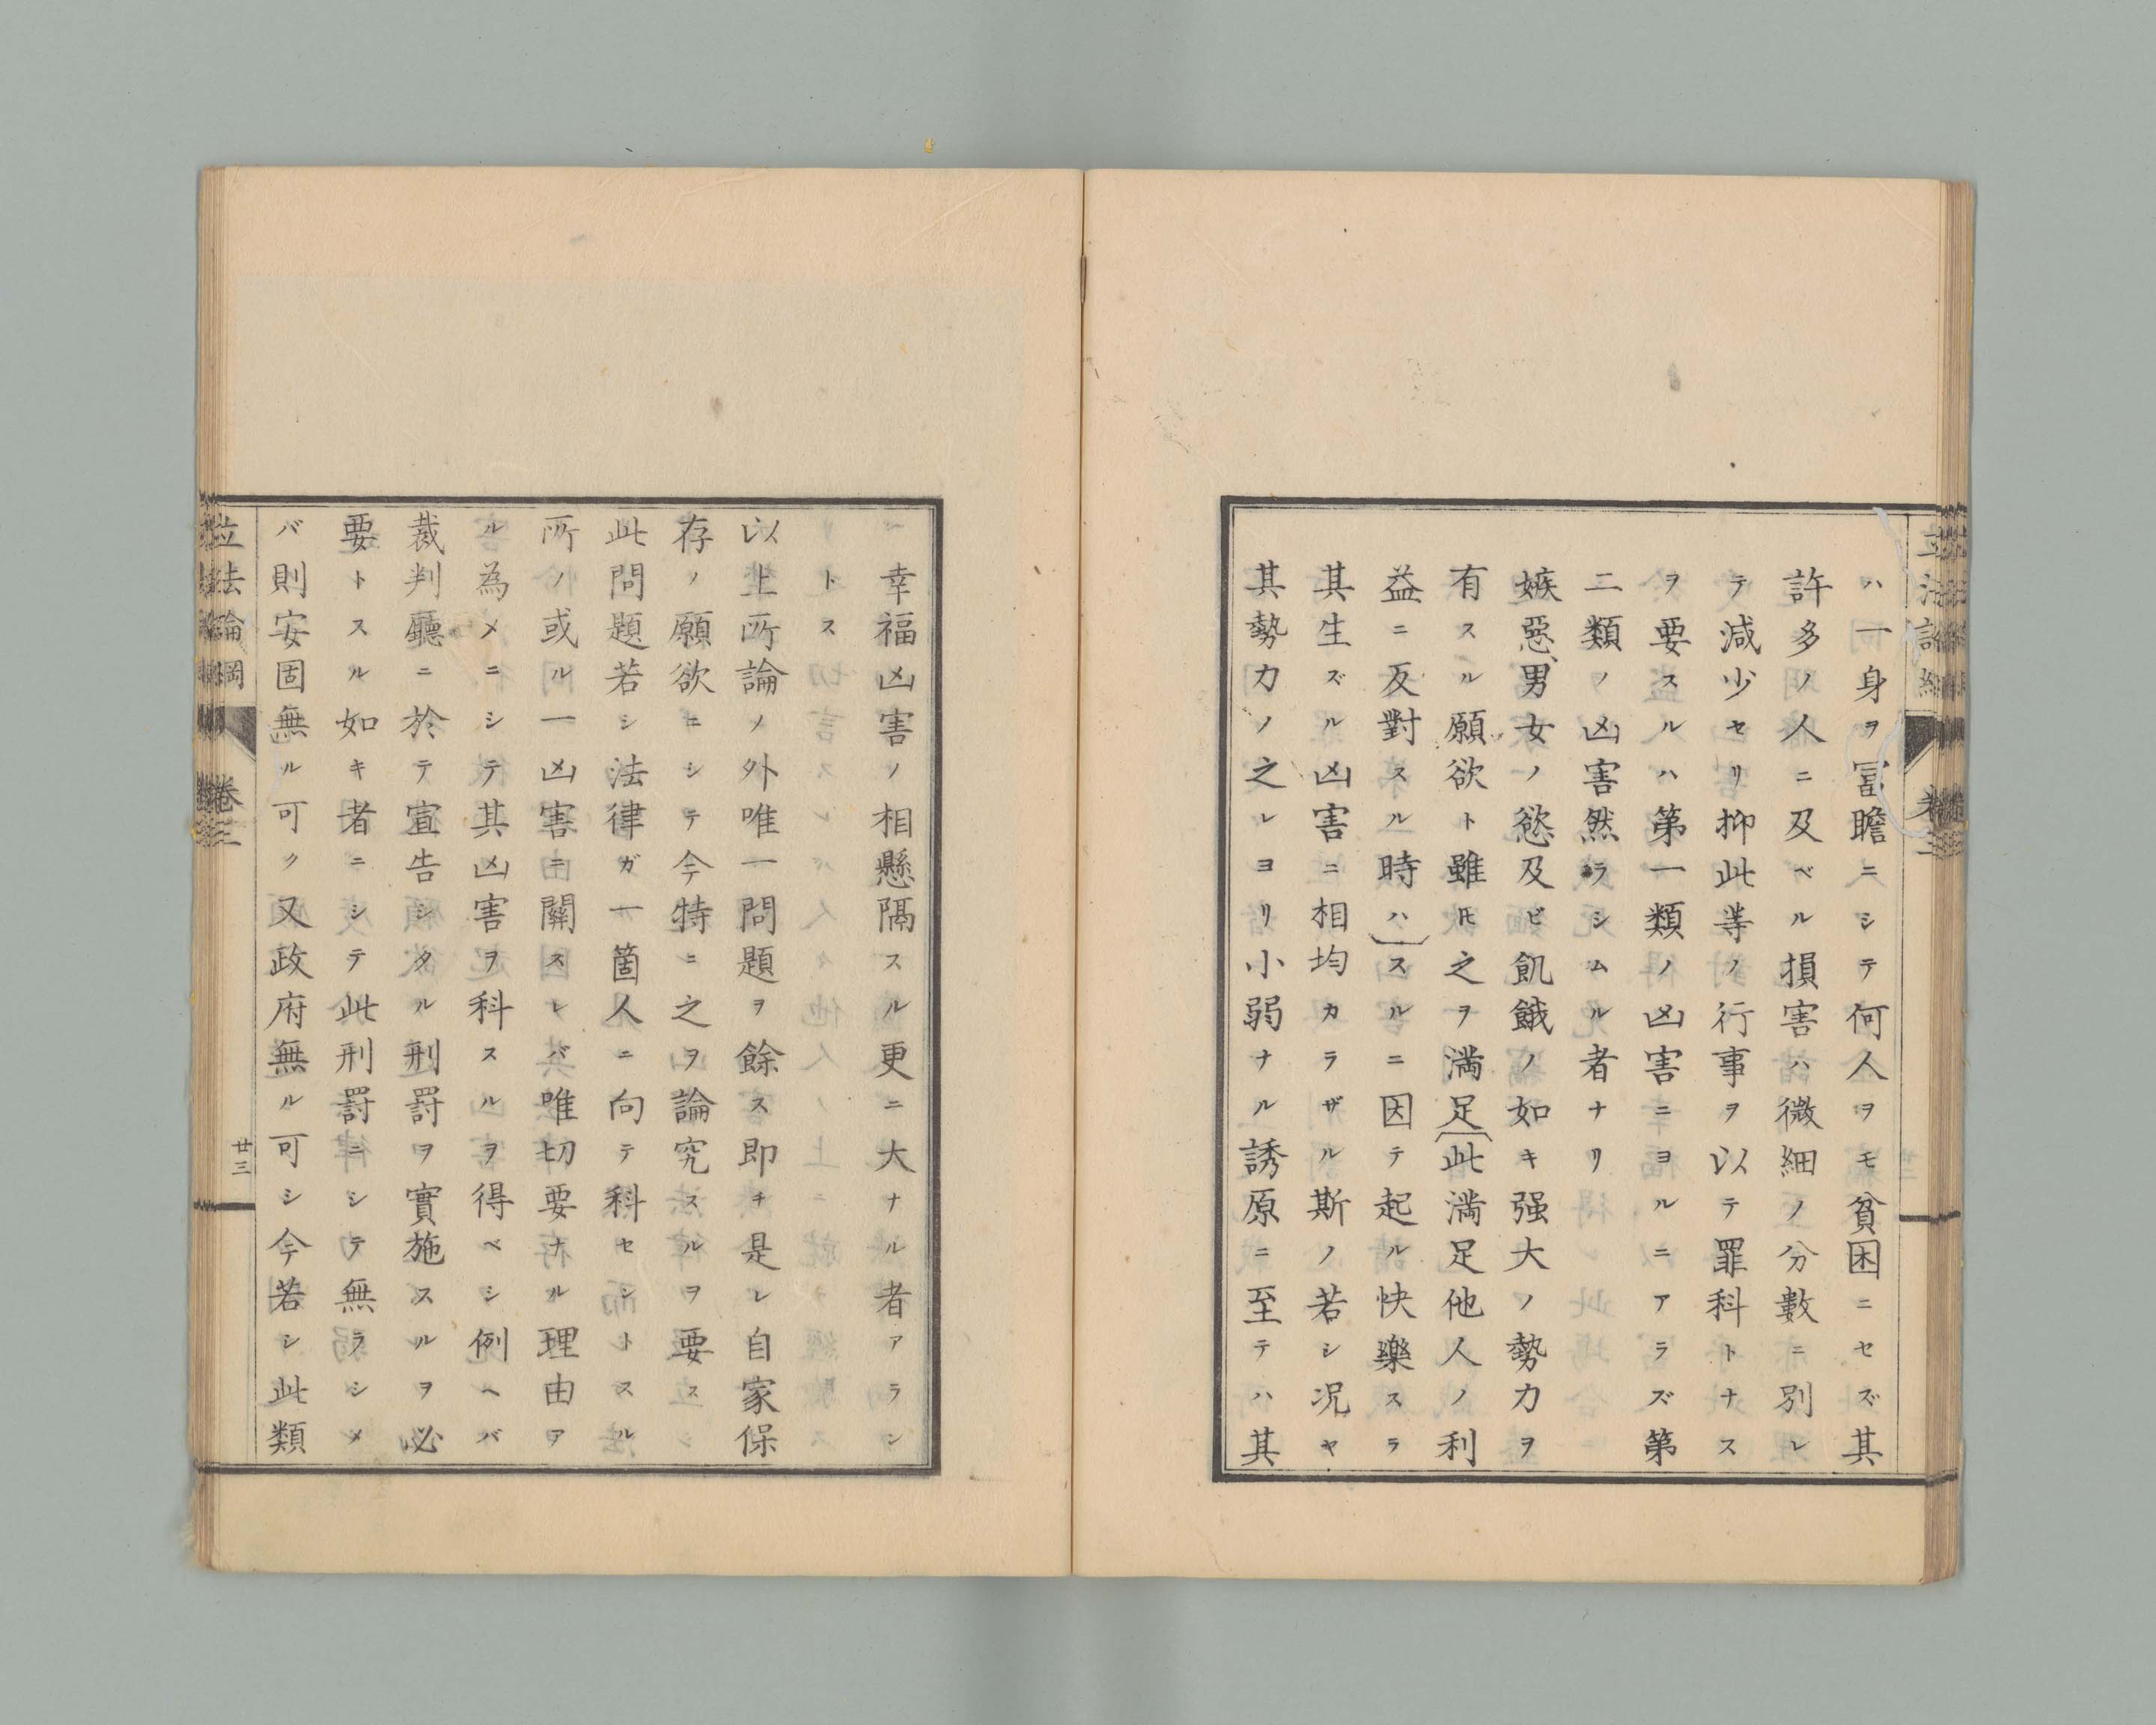 ハ一身ヲ冨贍ニシテ何人ヲモ貧困ニセズ其
許多ノ人ニ及ベル損害ハ微細ノ分數ニ別レ
テ減少セリ抑此等ノ行事ヲ以テ罪科トナス
ヲ要スルハ第一類ノ凶害ニヨルニアラズ第
二類ノ凶害然ラシムル者ナリ
嫉惡、男女ノ慾及ビ飢餓ノ如キ强大ノ勢力ヲ
有スル願欲ト雖𪜈之ヲ滿足〔此滿足他人ノ利
益ニ反對スル時ハ〕スルニ因テ起ル快樂スラ
其生ズル凶害ニ相均カラザル斯ノ若シ况ヤ
其勢力ノ之レヨリ小弱ナル誘原ニ至テハ其
幸福凶害ノ相懸隔スル更ニ大ナル者アラン
トス
以上所論ノ外唯一問題ヲ餘ス即チ是レ自家保
存ノ願欲ニシテ今特ニ之ヲ論究スルヲ要ス
此問題若シ法律ガ一箇人ニ向テ科セントスル
所ノ或ル一凶害ニ關スレバ唯切要ナル理由ア
ル為メニシテ其凶害ヲ科スルヲ得ベシ例ヘバ
裁判廳ニ於テ宣告シタル刑罸ヲ實施スルヲ必
要トスル如キ者ニシテ此刑罸ニシテ無ラシメ
バ則安固無ル可ク又政府無ル可シ今若シ此類
立法論綱
卷三
廿三